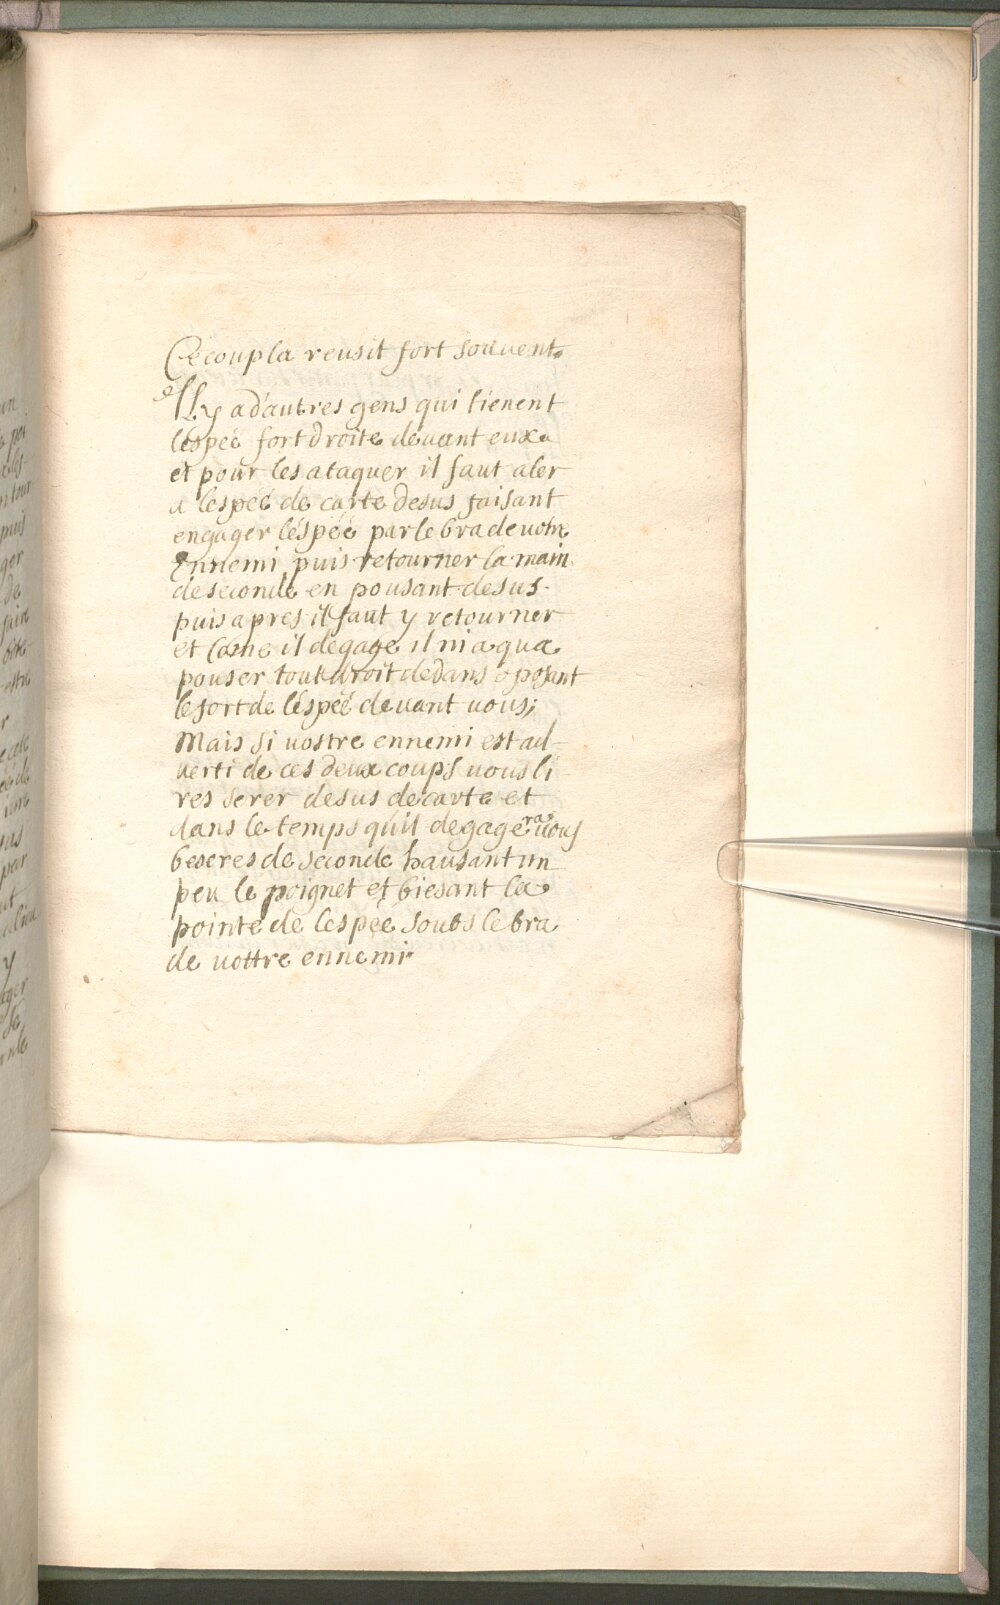 Ce coup la reusit fort souvent.
Il y a d'autres gens qui tienent
lespeé fort droite devant eux
et pour les ataquer il faut aler
a lespeé de carte desus faisant
engager léspeé par le bra de votre
Ennemi puis retourner la main
de seconde en pousant desus.
puis apres il faut y retourner
et come il degage il ni a qua
pouser tout droit dedans oposant
le fort de léspeé devant vous;
Mais si vostre ennemi est ad
verti de ces deux coups vous li
res serer desus de carte et
dans le temps quil degagera vous
beseres de seconde hausant un
peu le poignet et biesant la
pointe de lespeé soubs le bra
de vottre ennemi